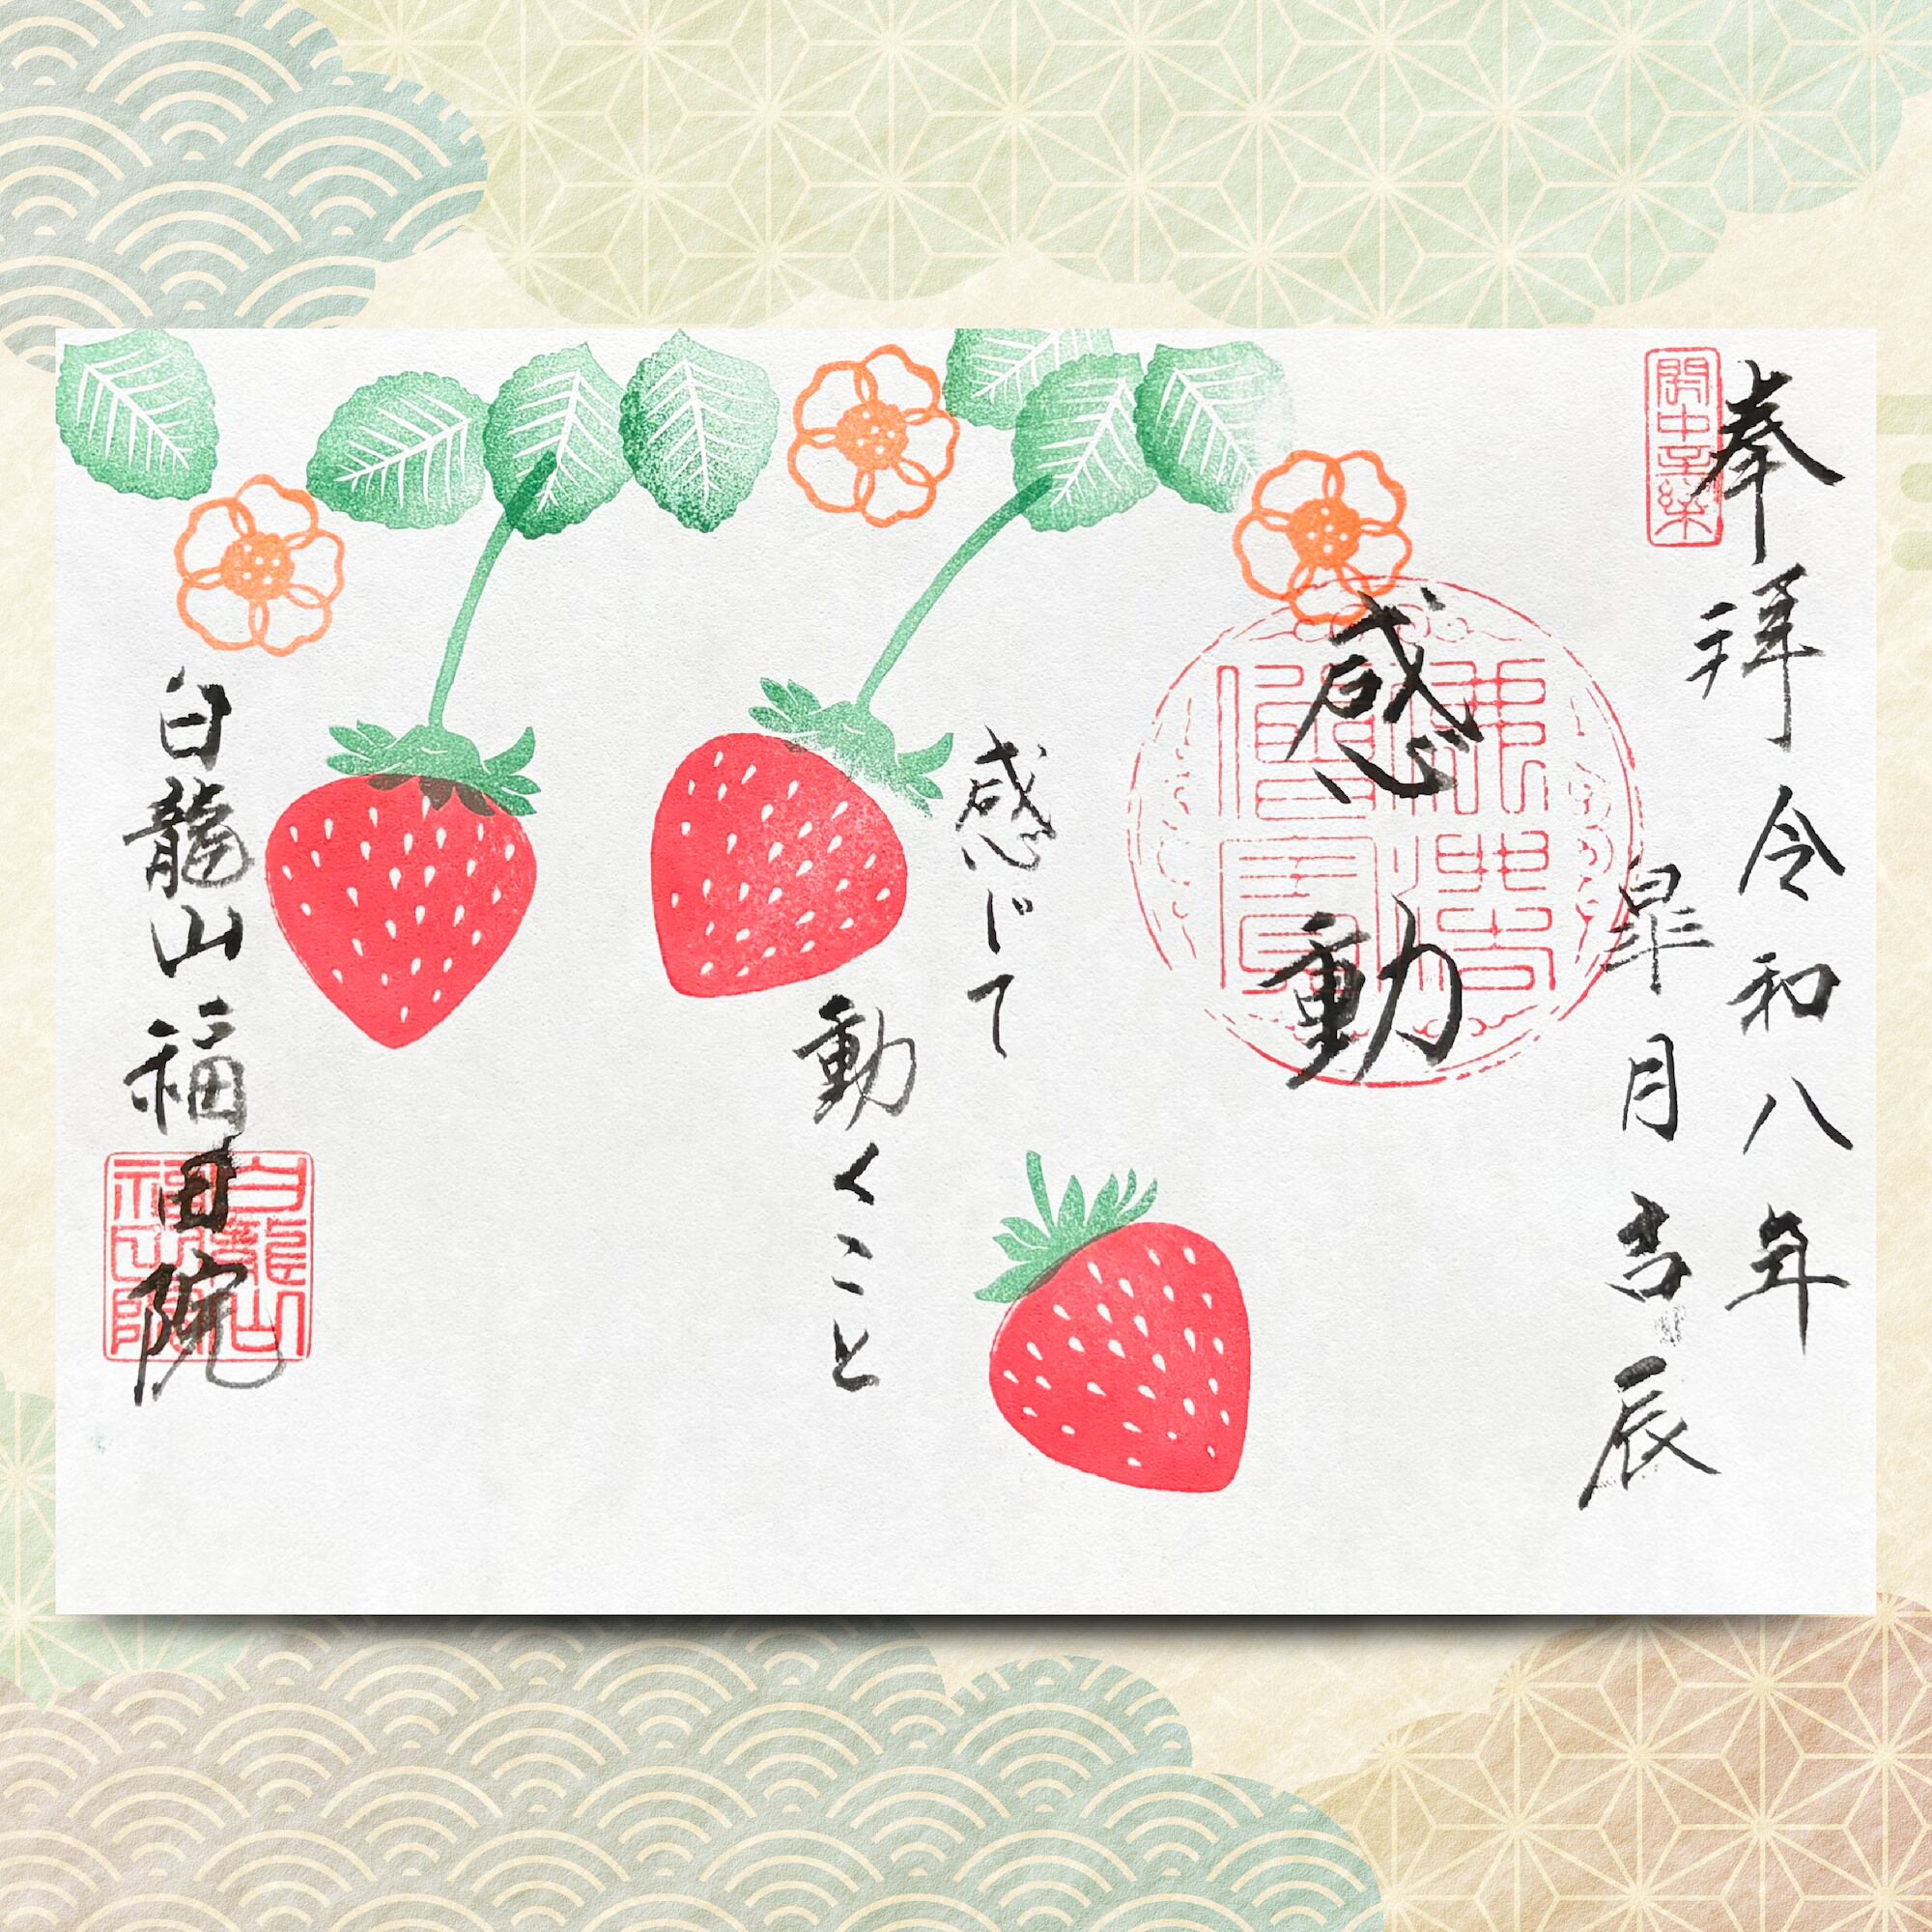 奉拝
令和八年
皐月吉辰
感動
感じて
動くこと
白龍山福田院
佛法僧寶
白龍山福田院